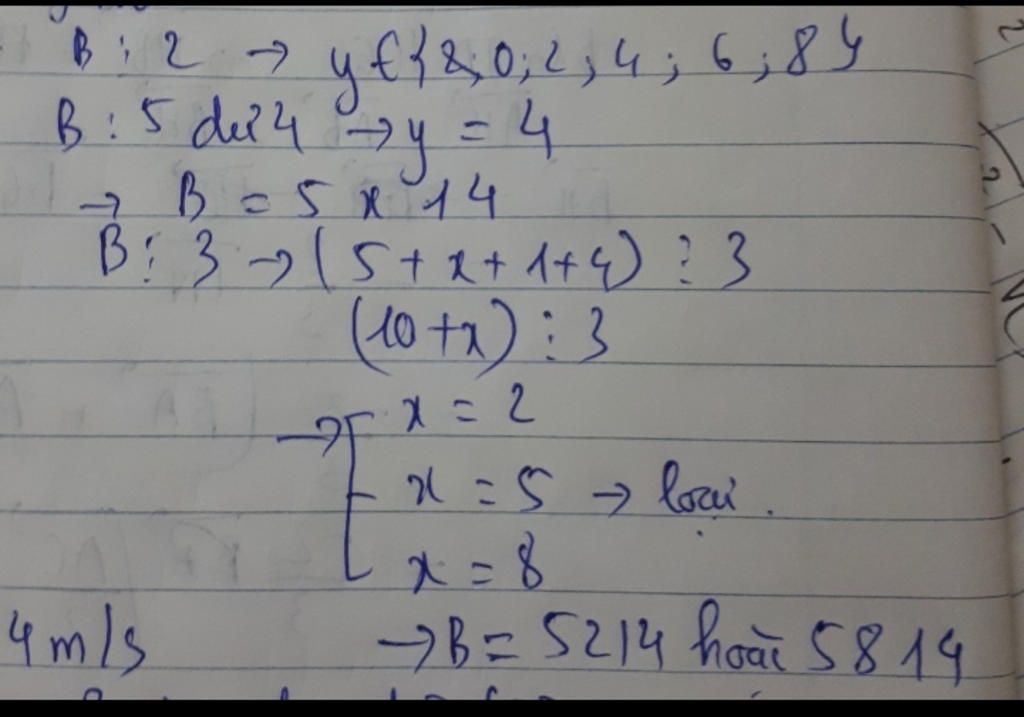 B ⋮ 2 → y ∈ {2; 0; 2; 4; 6; 8}
B : 5 dư 4 → y = 4
→ B = 5x14
B ⋮ 3 → (5 + x + 1 + 4) ⋮ 3
(10 + x) ⋮ 3
→ [ x = 2
x = 5 → loại.
x = 8
4 m/s → B = 5214 hoặc 5814